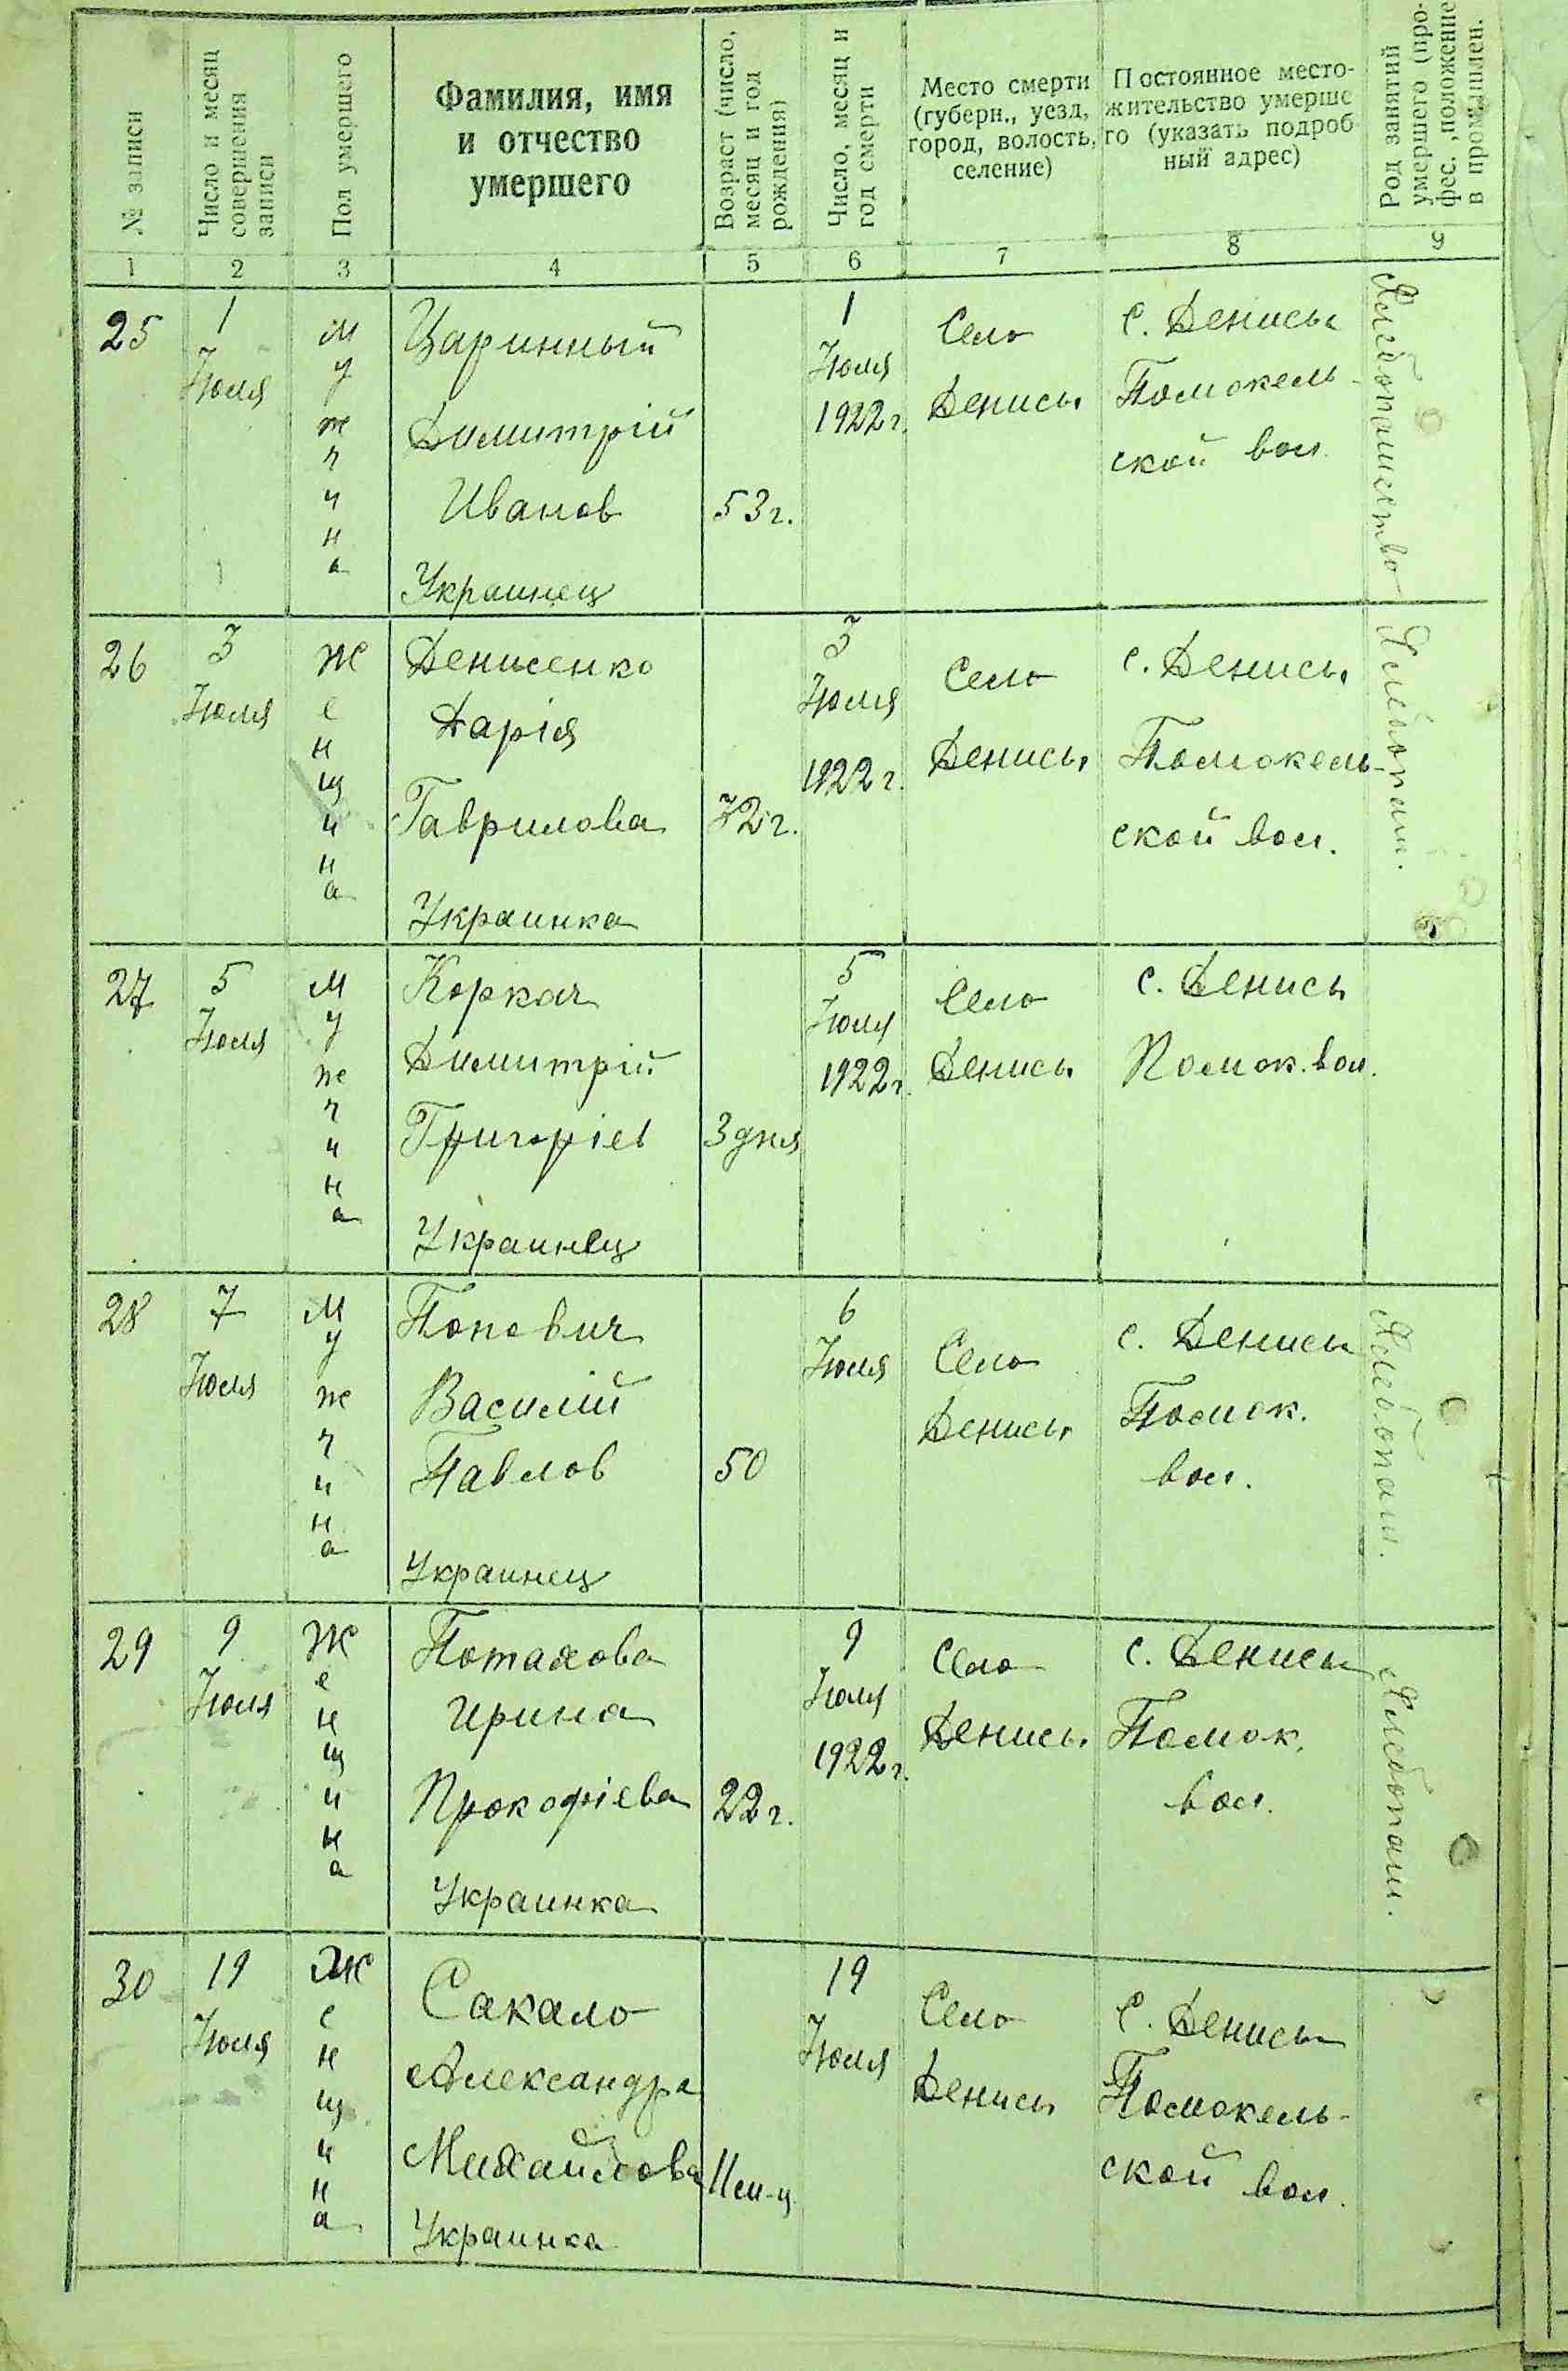 № записи
Число и месяц
совершения
записи
Пол умершего
Фамилия, имя
и отчество
умершего
Возраст (число,
месяц и год
рождения)
Число, месяц и
год смерти
Место смерти
(губерн., уезд,
город, волость,
селение)
Постоянное место-
жительство умерше
го (указать подроб
ный адрес)
Род занятий
умершего (про-
фес., положение
в промышлен.
1 2 3 4 5 6 7 8 9
25
1
Июля
мужчина
Царинный
Димитрій
Иванов
Украинец
53 г.
1
Июля
1922 г.
Село
Денисы
с. Денисы
Помокель-
ской вол.
Хлебопашество
26
3
Июля
Женщина
Денисенко
Дарія
Гаврилова
Украинка
72 г.
3
Июля
1922 г.
Село
Денисы
с. Денисы
Помокель-
ской вол.
Хлебопаш.
27
5
Июля
мужчина
Коркач
Димитрій
Григоріев
Украинец
3 дня
5
Июля
1922 г.
Село
Денисы
с. Денисы
Помок. вол.
28
7
Июля
мужчина
Попович
Василій
Павлов
Украинец
50
6
Июля
Село
Денисы
с. Денисы
Помок.
вол.
Хлебопаш.
29
9
Июля
Женщина
Потахова
Ирина
Прокофіева
Украинка
22 г.
9
Июля
1922 г.
Село
Денисы
с. Денисы
Помок.
вол.
Хлебопаш.
30
19
Июля
Женщина
Сакало
Александра
Михайлова
Украинка
11 м-ц.
19
Июля
Село
Денисы
С. Денисы
Помокель-
ской вол.